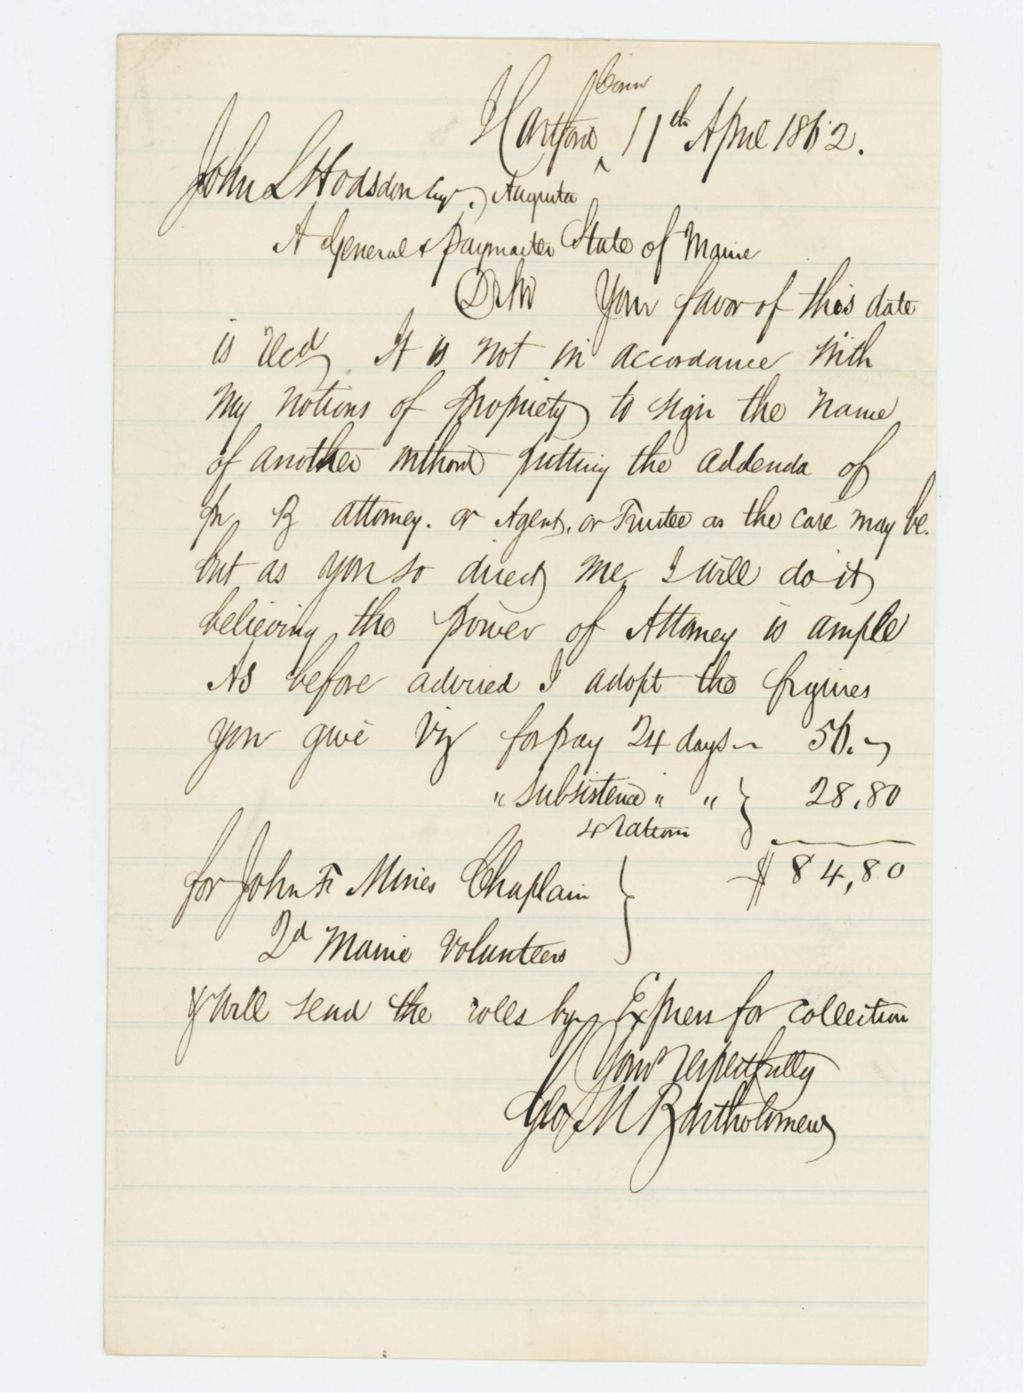 Hartford Conn 11th April 1862.
John L Hodsdon Esqr. Augusta
A General & Paymaster State of Maine
Dr Sir Your favor of this date
is Recd. It is not in accordance with
my notions of propriety to sign the name
of another without putting the addenda of
attorney. or Agent, or Trustee as the case may be.
but as you so direct me, I will do it
believing the power of Attorney is ample
As before advised I adopt the figures
you give Viz for pay 24 days 56.
" Subsistence " " } 28,80
4 rations
$84,80
for John F Mines Chaplain }
2d Maine Volunteers
& will send the rolls by Express for collection
Yours respectfully
Geo M Bartholomew